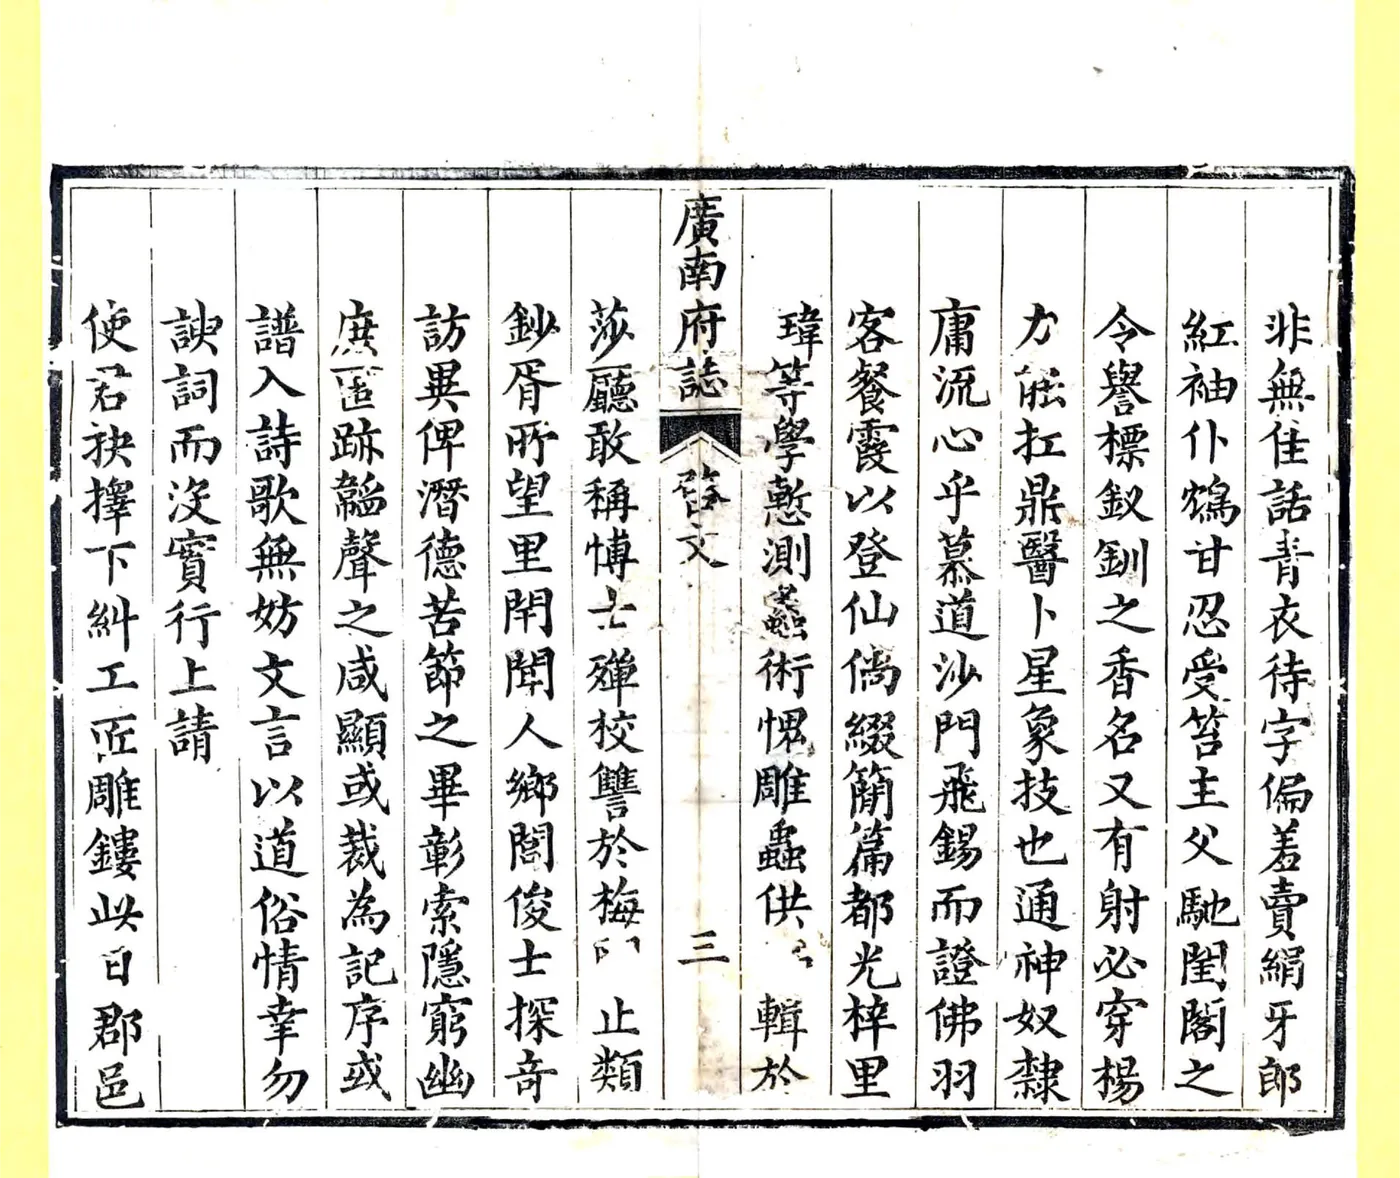 非無佳話青衣待字偏羞賣絹牙郎
紅袖仆鴆甘忍受笞主父馳閨閣之
令譽標釵釧之香名又有射必穿楊
力能扛鼎醫卜星象技也通神奴隸
庸流心乎慕道沙門飛錫而證佛羽
客餐霞以登仙僞綴簡篇都光梓里
瑋等學慙測蠡術愧雕蟲供 輯於
廣南府誌
啓文
三
莎廳敢稱博士殫校讐於梅 止類
鈔胥所望里閈聞人鄉閭俊士探奇
訪異俾潛德苦節之畢彰索隱窮幽
庶匿跡韜聲之咸顯或裁為記序或
譜入詩歌無妨文言以道俗情幸勿
諛詞而沒實行上請
使君抉擇下糾工匠雕鏤此日郡邑